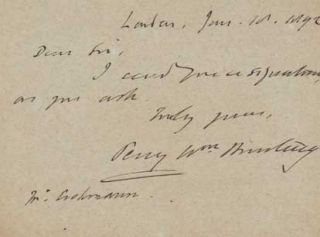 London, Jan. 10. 1892
Dear Sir,
I send you a signature,
as you ask.
Truly yours,
Percy Wm Bunting
Mr. Erdmann.